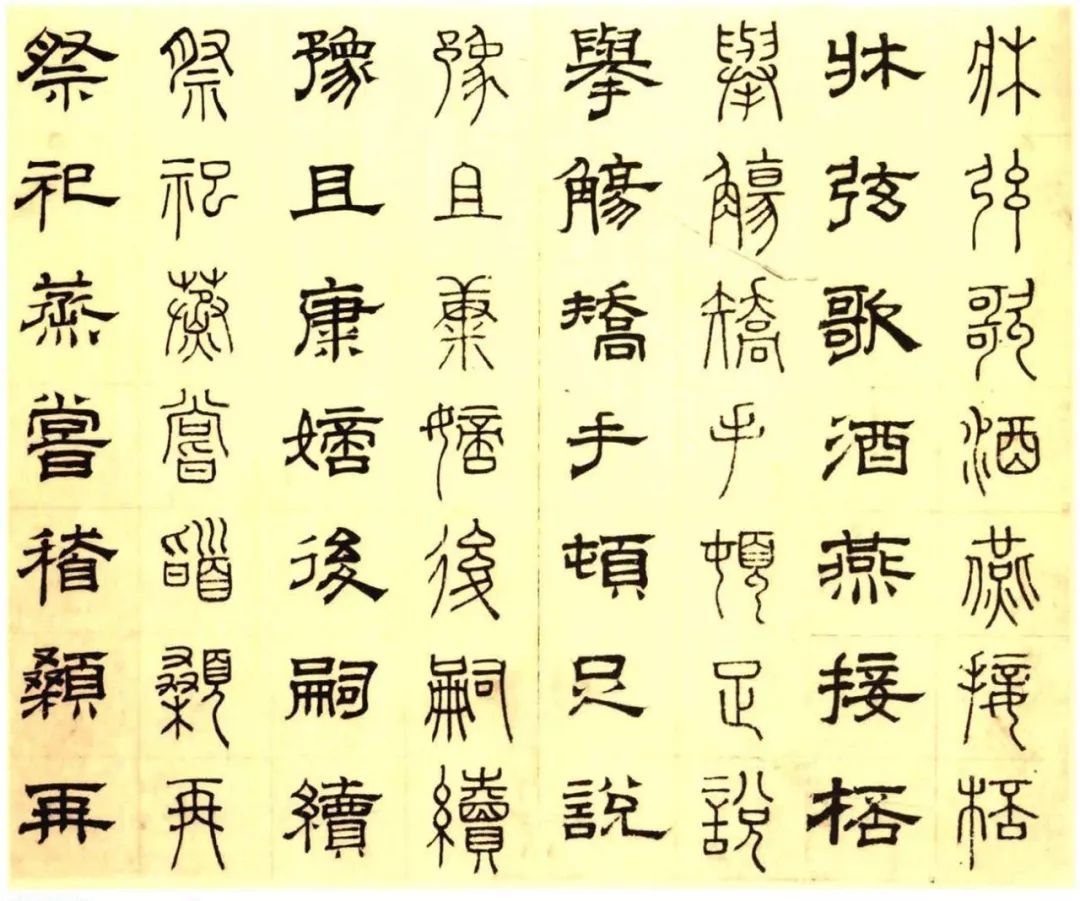 牀弦歌酒燕接桮
牀弦歌酒燕接桮
舉觴矯手頓足說
舉觴矯手頓足說
豫且康嫡後嗣續
豫且康嫡後嗣續
祭祀蒸嘗稽顙再
祭祀蒸嘗稽顙再